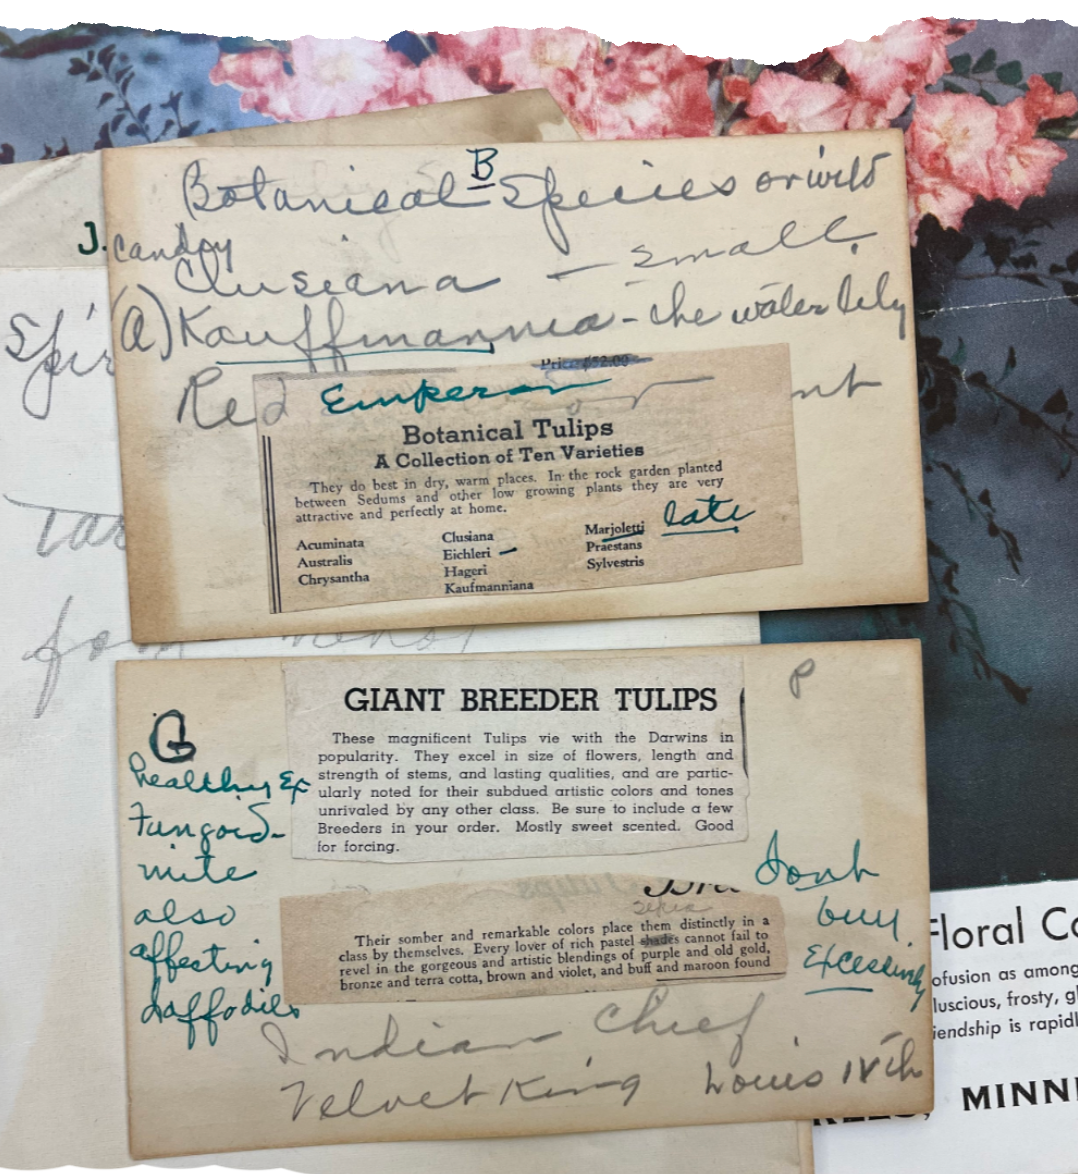 B
Botanical Species or wild
J.
candy
Clusiana - small.
(a) Kauffmannia - the water lily
Spir
Red
nt
Price $52.00
Emperor
Botanical Tulips
A Collection of Ten Varieties
They do best in dry, warm places. In the rock garden planted
between Sedums and other low growing plants they are very
attractive and perfectly at home.
late
Acuminata
Australis
Chrysantha
Clusiana
Eichleri
Hageri
Kaufmanniana
Marjoletti
Praestans
Sylvestris
Tar
for
P
GIANT BREEDER TULIPS
These magnificent Tulips vie with the Darwins in
popularity. They excel in size of flowers, length and
strength of stems, and lasting qualities, and are partic-
ularly noted for their subdued artistic colors and tones
unrivaled by any other class. Be sure to include a few
Breeders in your order. Mostly sweet scented. Good
for forcing.
G
healthy Ex
Fungoid-
mite
also
affecting
daffodils
Dont
buy.
Excessively
sepia
Their somber and remarkable colors place them distinctly in a
class by themselves. Every lover of rich pastel shades cannot fail to
revel in the gorgeous and artistic blendings of purple and old gold,
bronze and terra cotta, brown and violet, and buff and maroon found
Indian Chief
Velvet King Louis IVth
Floral Co
ofusion as among
luscious, frosty, gl
iendship is rapidl
MINNE